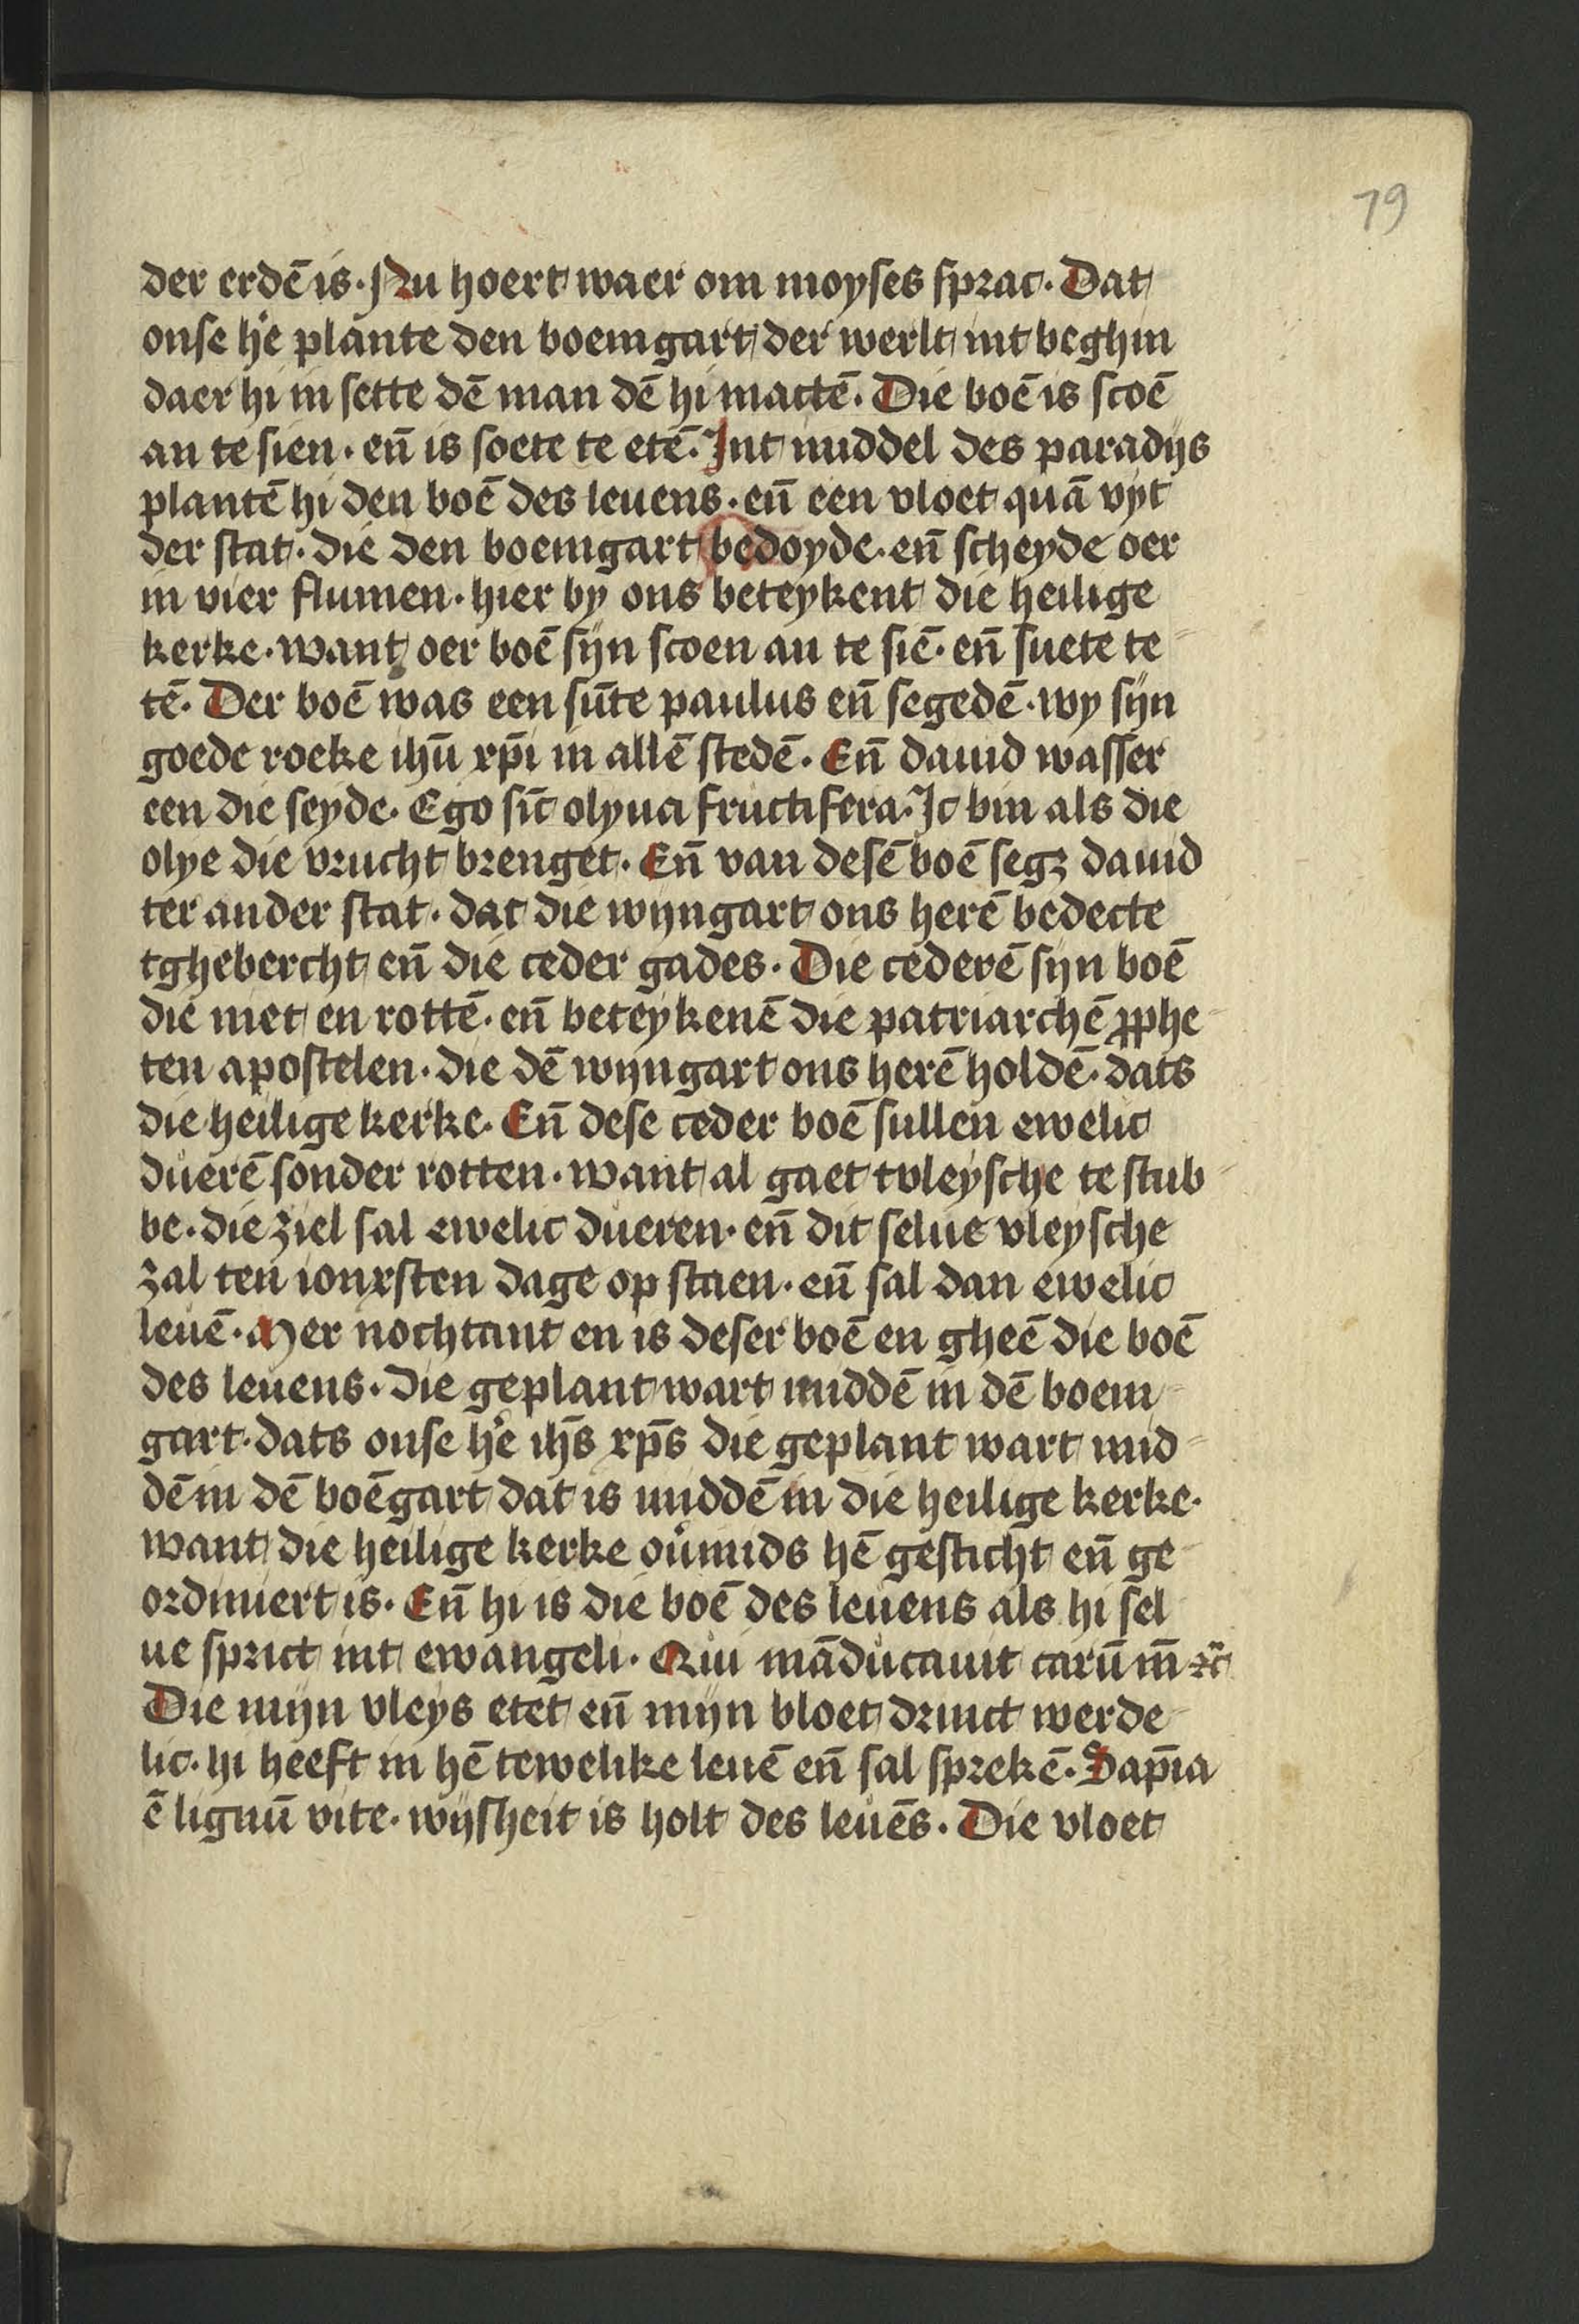 79
der erdē is· Nu hoert waer om moyses sprac· Dat
onse h̊e plante den boemgart der werlt int beghin
daer hi in sette dē man dē hi mactē· Die boē is scoē
an te sien· en̄ is soete te etē· Int middel des paradijs
plantē hi den boē des leuens· en̄ een vloet quā vyt
der stat· die den boemgart bedoyde· en̄ scheyde oer
in vier flumen· hier by ons beteykent die heilige
kerke· want oer boē sijn scoen an te siē· en̄ suete te
tē· Der boē was een sūte paulus en̄ segedē· wy sijn
goede roeke ihū xp̄i in allē stedē· En̄ dauid wasser
een die seyde· Ego sic̄ olyua fructifera· Ic bin als die
olye die vrucht brenget· En̄ van desē boē segꝫ dauid
ter ander stat· dat die wijngart ons herē bedecte
tghebercht en̄ die ceder gades· Die cederē sijn boē
die niet en rottē· en̄ beteykenē die patriarchē ꝓphe-
ten apostelen· die dē wijngart ons herē holdē· dats
die heilige kerke· En̄ dese ceder boē sullen ewelic
duerē sonder rotten· want al gaet tvleysche te stub-
be· die ziel sal ewelic dueren· en̄ dit selue vleysche
zal ten ionxsten dage op staen· en̄ sal dan ewelic
leuē· Mer nochtant en is deser boē en gheē die boē
des leuens· Die geplant wart middē in dē boem-
gart· dats onse h̊e ihs̄ xp̄s die geplant wart mid-
dē in dē boēgart dat is middē in die heilige kerke·
want die heilige kerke ou̓mids hē gesticht en̄ ge-
ordiniert is· En̄ hi is die boē des leuens als hi sel
ue sprict int ewangeli· Qui māducauit carū m̄ ⁊c̄
Die mijn vleys etet en̄ mijn bloet drinct werde-
lic· hi heeft in hē tewelike leuē en̄ sal sprekē· Sap̄ia
ē lignū vite· wijsheit is holt des leuēs· Die vloet